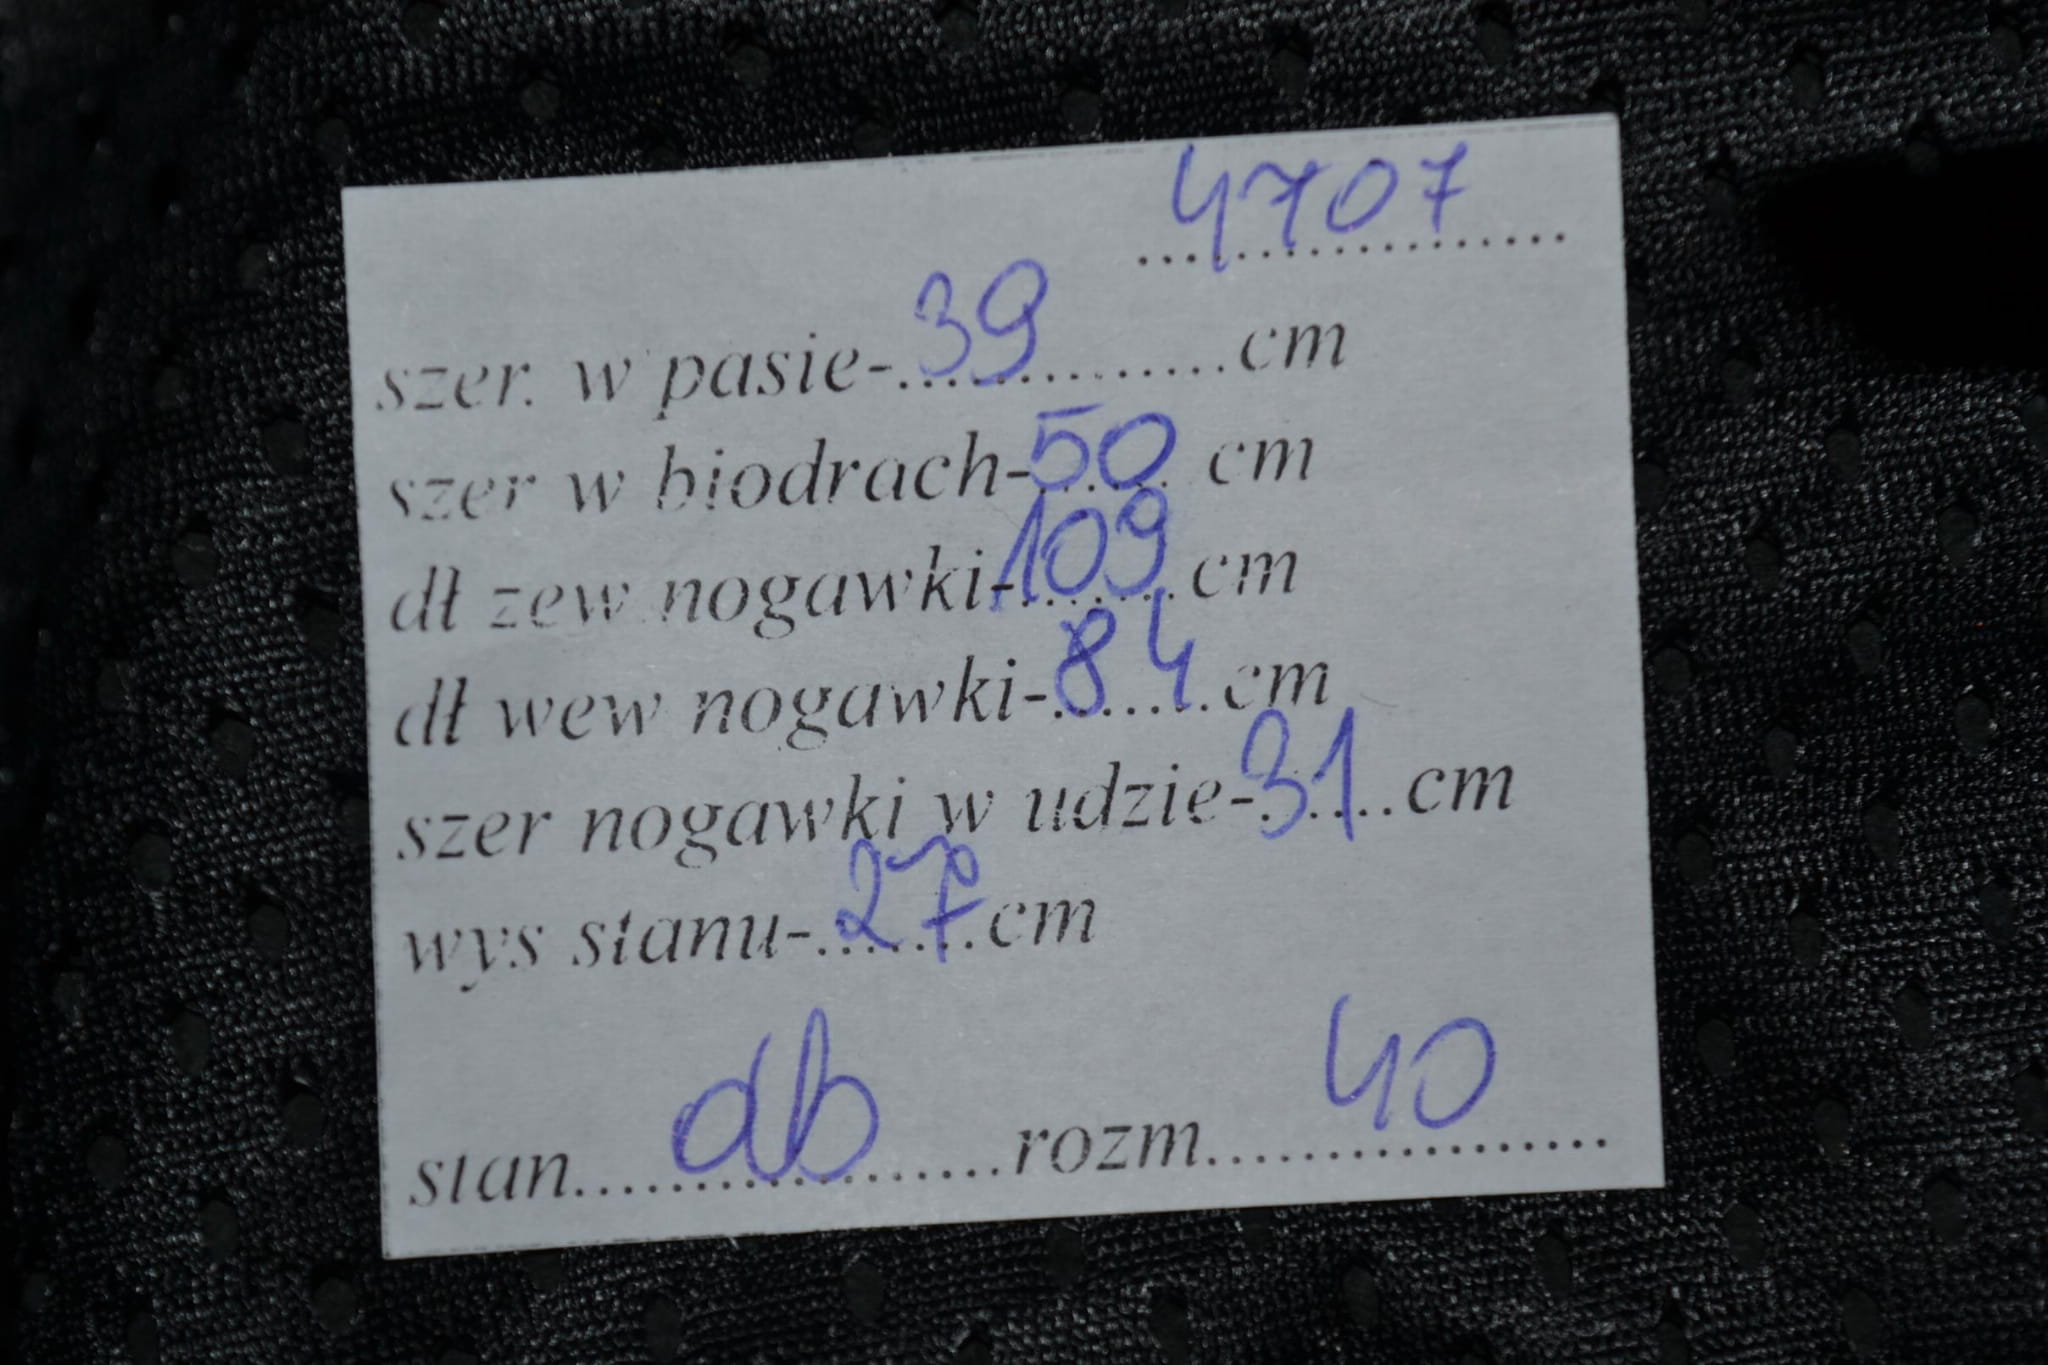 4707
szer. w pasie-39..............cm
szer w biodrach-50...... cm
dł zew nogawki-109.......cm
dł wew nogawki-84.......cm
szer nogawki w udzie-31.....cm
wys stanu-27.......cm
stan......db......rozm......40......